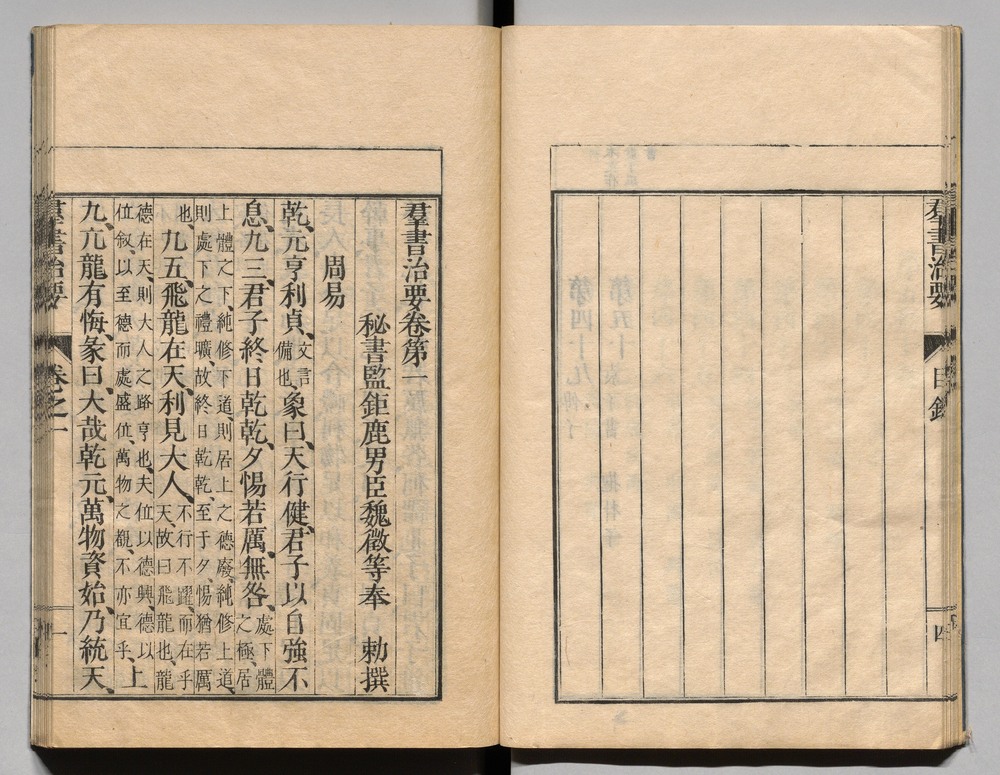 羣書治要 目錄 四
羣書治要卷第一
秘書監鉅鹿男臣魏徵等奉 勅撰
周易
乾、元亨利貞、文言備也、象曰、天行健、君子以自強不
息、九三、君子終日乾乾、夕惕若厲、無咎、處下體之極、居
上體之下、純修下道、則居上之德廢、純修上道、
則處下之禮曠、故終日乾乾、至于夕惕猶若厲
也、九五、飛龍在天、利見大人、不行不躍、而在乎天、故曰飛龍也、龍
德在天、則大人之路亨也、夫位以德興、德以
位叙、以至德而處盛位、萬物之覩、不亦宜乎、上
九、亢龍有悔、彖曰、大哉乾元、萬物資始、乃統天、
羣書治要 卷之一 一